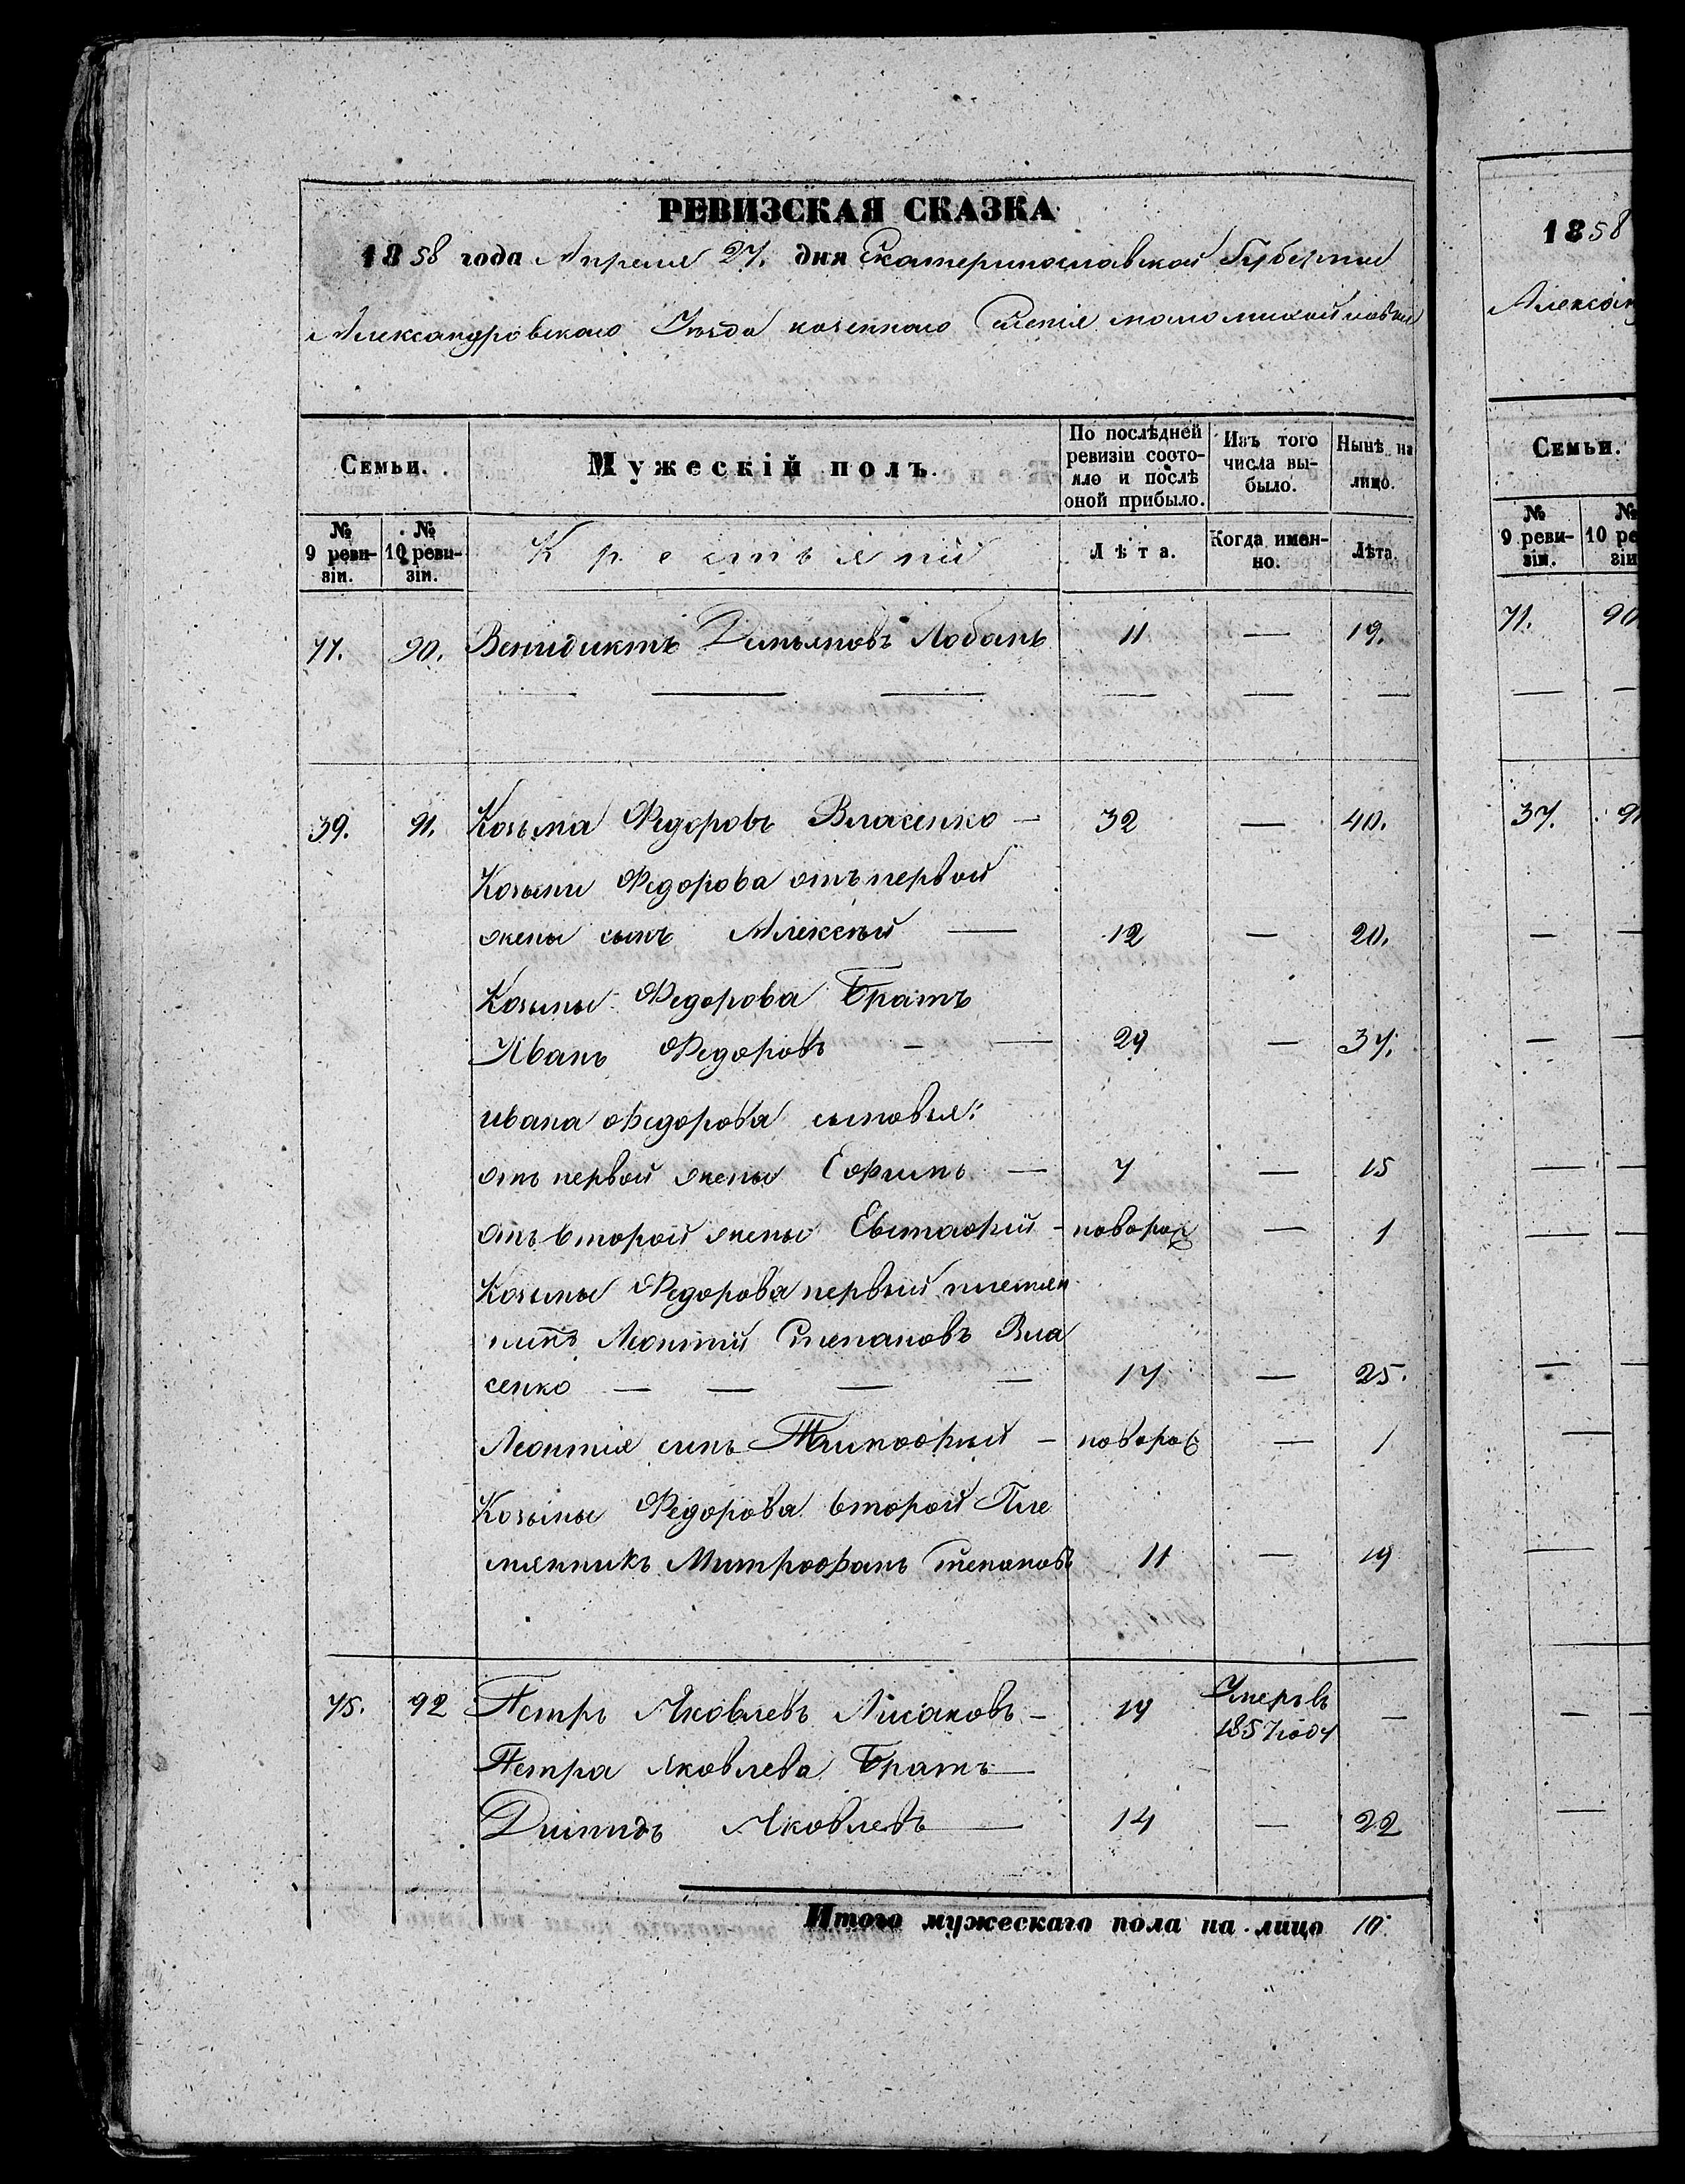 РЕВИЗСКАЯ СКАЗКА
1858 года Апреля 27. дня Екатеринославской Губернии
Александровского Уезда казенного Селенія маломихайловки
Семьи. Мужескій полъ. По послѣдней ревизіи состояло и послѣ оной прибыло. Изъ того числа выбыло. Нынѣ на лицо.
№ 9 ревизіи. № 10 ревизіи. Крестьяни Лѣта. Когда именно. Лѣта.
71. 90. Венидиктъ Демьяновъ Лобань 11 — 19.
39. 91. Козьма Федоровъ Власенко — 32 — 40.
Козьми Федорова отъ первой
жены сынъ Алексѣй — 12 — 20.
Козьмы Федорова Братъ
Иванъ Федоровъ — — 29 — 37.
ивана Федорова сыновья:
отъ первой жены Ефимъ — 7 — 15
отъ второй жены Евстафій — новорож — 1
Козьмы Федорова первый племян
никъ Леонтий Степановъ Вла
сенко — — — — 17 — 25.
Леонтія сынъ Тимофѣй — новорож — 1
Козьмы Федорова второй Пле
мянникъ Митрофанъ Степановъ 11 — 19
75. 92 Петръ Яковлевъ Лисаковъ — 19 Умеръ въ 1857 году —
Петра Яковлева Братъ —
Діомидъ Яковлевъ — 14 — 22
Итого мужескаго пола на лицо 10.
1858
Алексан
Семьи.
№ 9 ревизіи. № 10 ре зіи
71. 90
37. 91